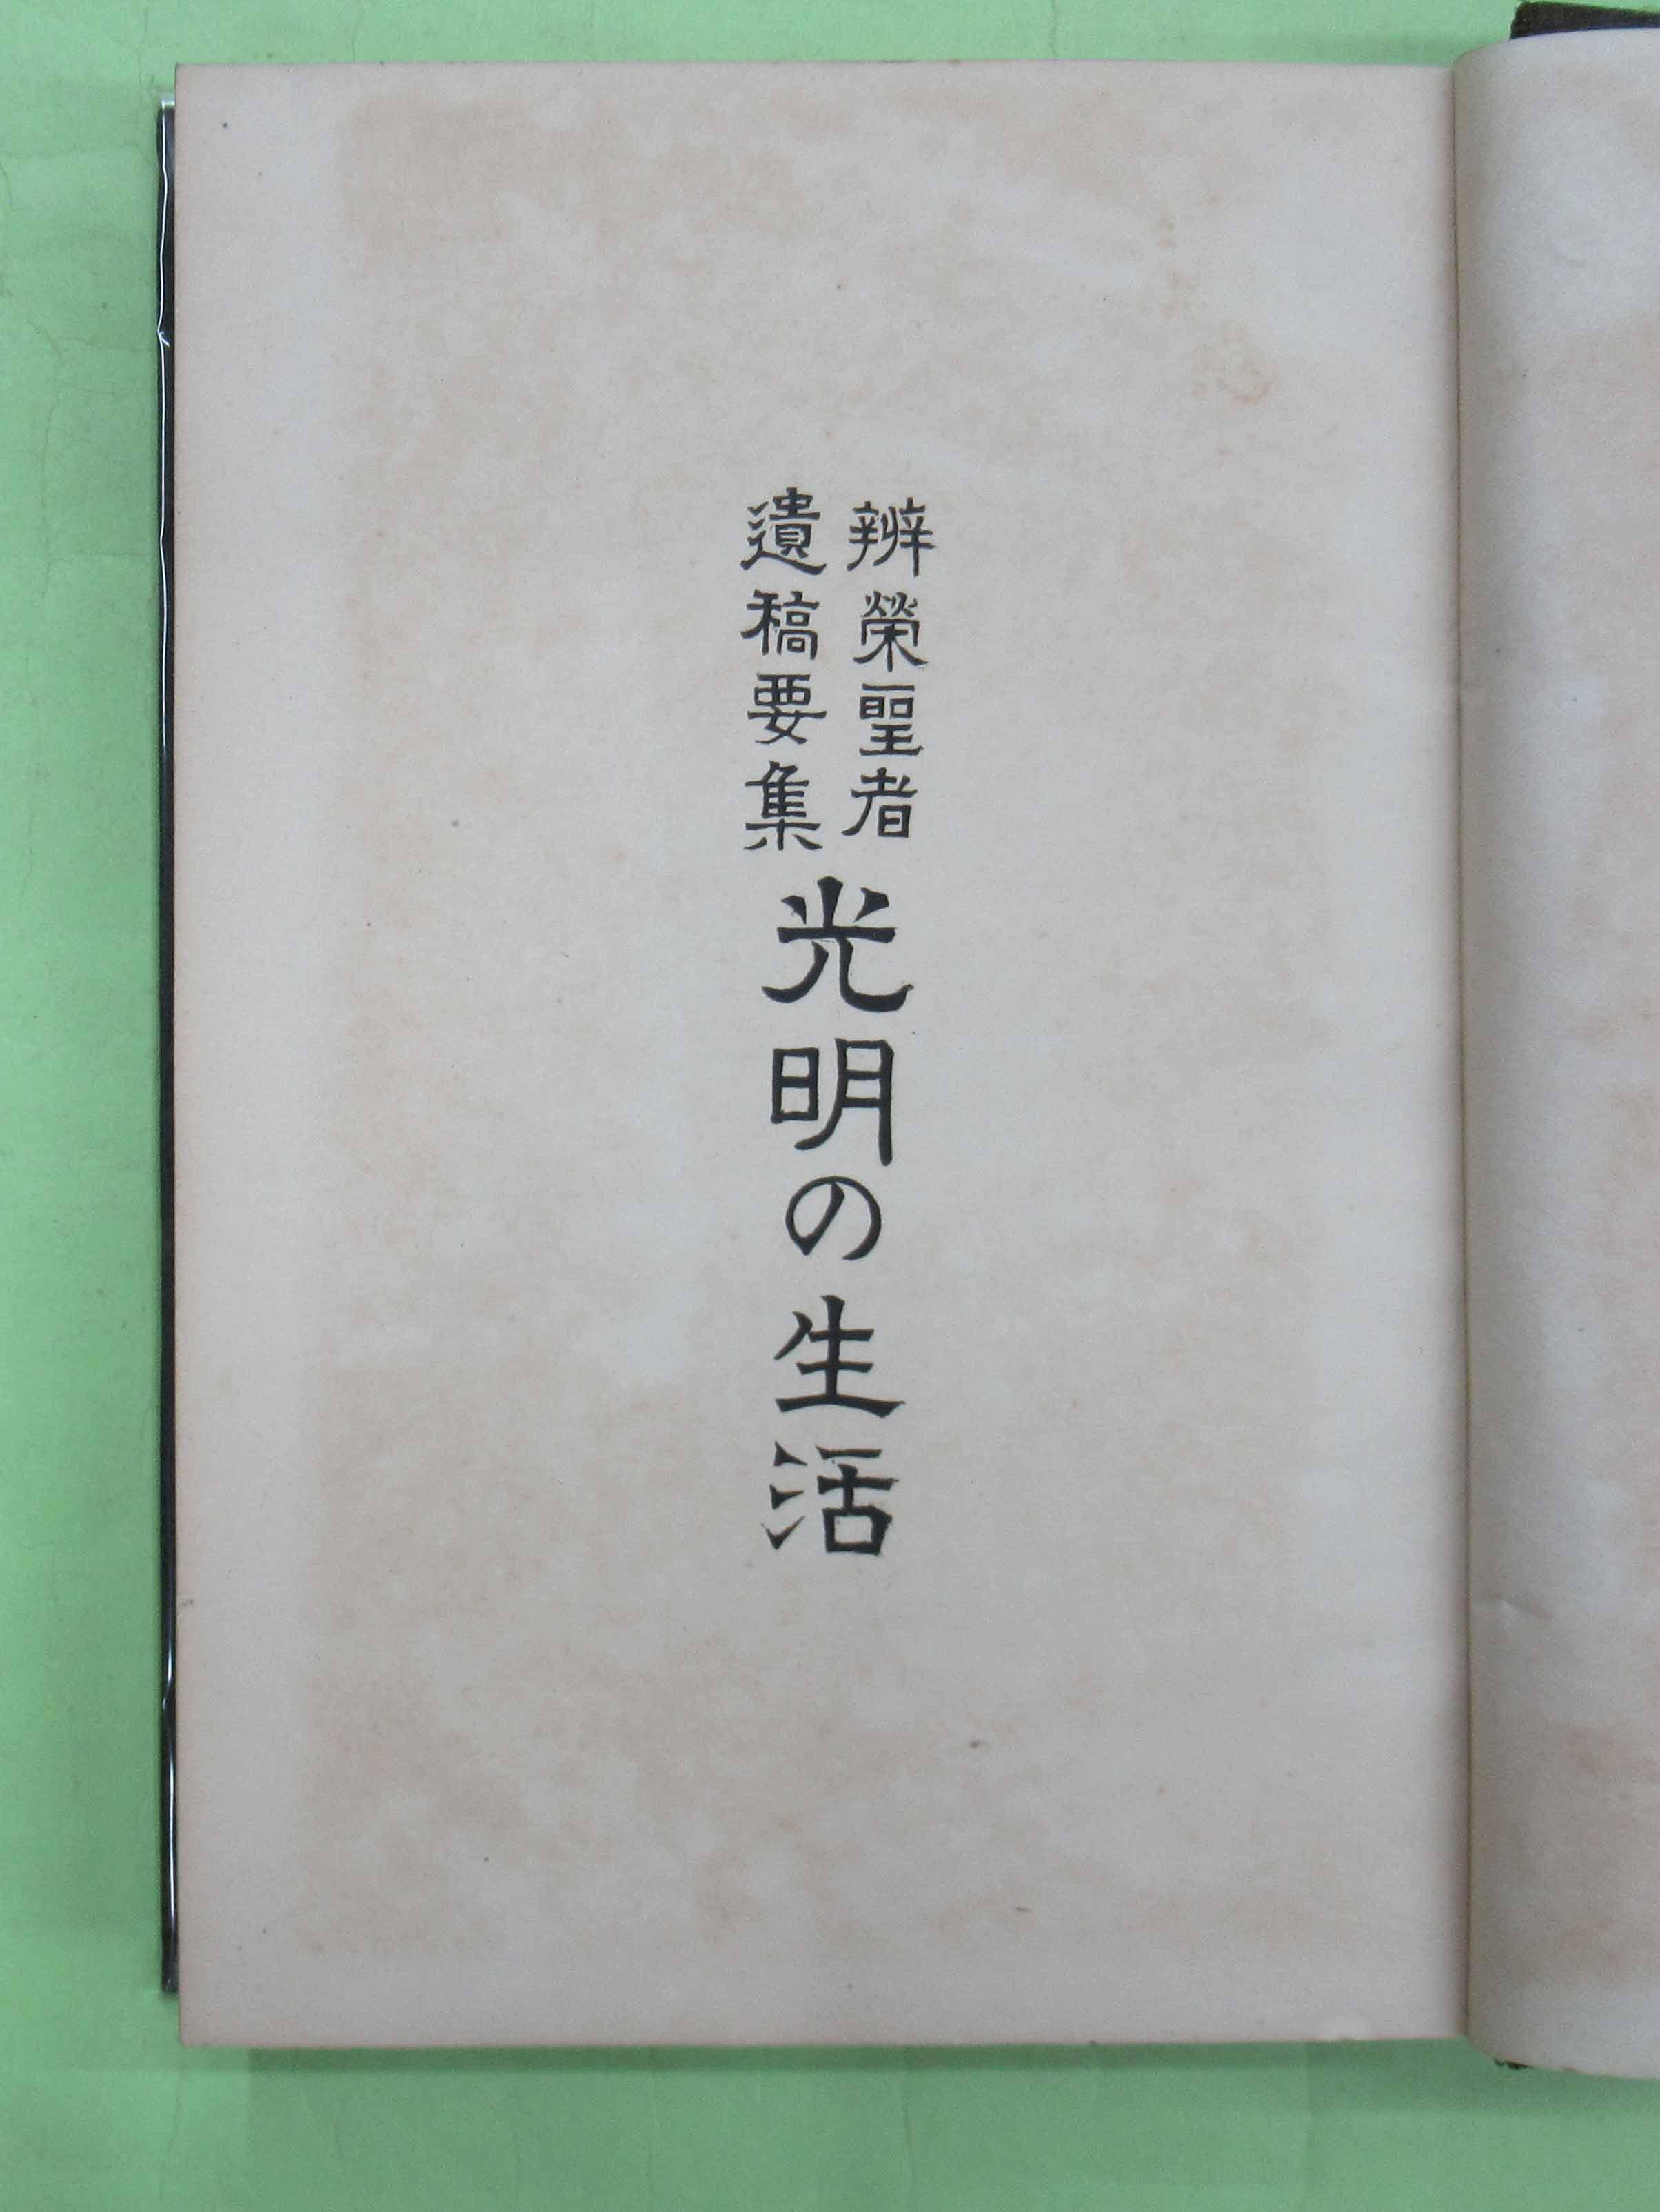 辨榮聖者
遺稿要集
光明の生活